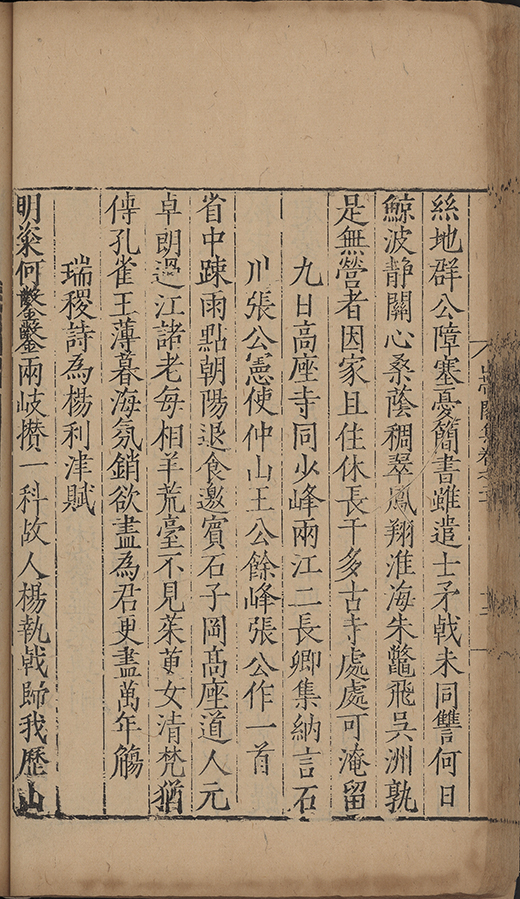 絲地群公障塞憂簡書雖遣士矛戟未同讐何日
鯨波靜關心桑蔭稠翠鳳翔淮海朱鼈飛吳洲孰
是無營者因家且住休長干多古寺處處可淹留
九日高座寺同少峰兩江二長卿集納言石
川張公憲使仲山王公餘峰張公作一首
省中踈雨點朝陽退食邀賓石子岡高座道人元
卓朗過江諸老每相羊荒臺不見茱萸女清梵猶
傳孔雀王薄暮海氛銷欲盡為君更盡萬年觴
瑞稷詩為楊利津賦
明粢何鑿鑿兩岐攢一科故人楊執戟歸我歷山